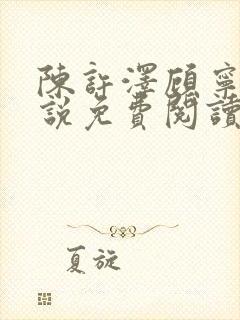 陳許澤顧寧
說免費閱讀
夏旋